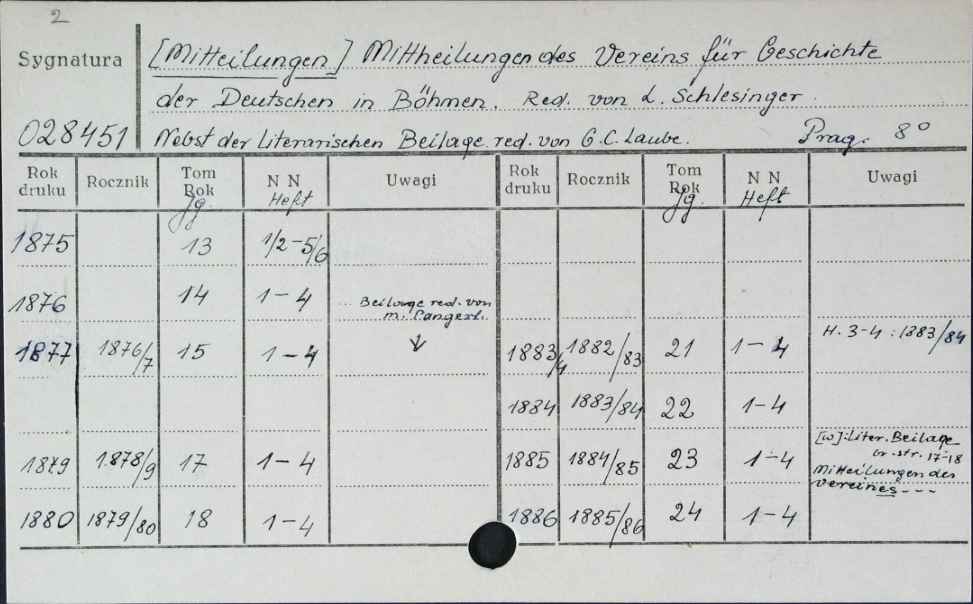 2
Sygnatura
[Mitteilungen] Mittheilungen des Vereins für Geschichte
der Deutschen in Böhmen. Red. von L. Schlesinger.
028451 Nebst der Literarischen Beilage red. von G.C. Laube. Prag. 8°
Rok druku Rocznik Tom Rok Jg. N N Heft Uwagi Rok druku Rocznik Tom Rok Jg. N N Heft Uwagi
1875 13 1/2-5/6
1876 14 1-4 Beilage red. von
m. Pangerl.
1877 1876/7 15 1-4 ↓ 1883/4 1882/83 21 1-4 H. 3-4 : 1883/84
1884 1883/84 22 1-4
1879 1878/9 17 1-4 1885 1884/85 23 1-4 [w] Liter. Beilage
br. str. 17-18
Mitteilungen des
Vereines ---
1880 1879/80 18 1-4 1886 1885/86 24 1-4